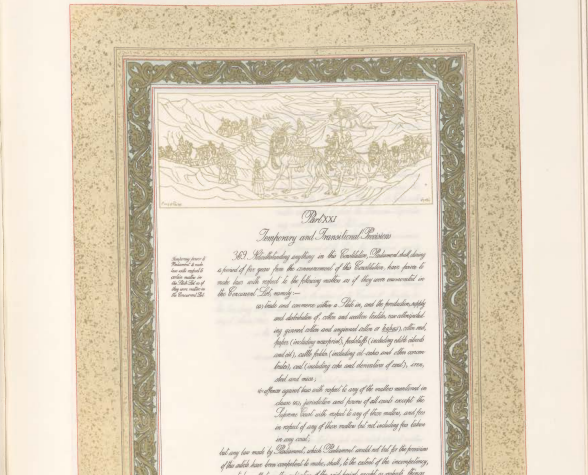 Part XXI
Temporary and Transitional Provisions
Temporary power of
Parliament to make
laws with respect to
certain matters in
the State List as if
they were matters in
the Concurrent List.
369. Notwithstanding anything in this Constitution, Parliament shall, during
a period of five years from the commencement of this Constitution, have power to
make laws with respect to the following matters as if they were enumerated in
the Concurrent List, namely:—
(a) trade and commerce within a State in, and the production, supply
and distribution of, cotton and woollen textiles, raw cotton (includ-
ing ginned cotton and unginned cotton or kapas), cotton seed,
paper (including newsprint), foodstuffs (including edible oilseeds
and oil), cattle fodder (including oil-cakes and other concen-
trates), coal (including coke and derivatives of coal), iron,
steel and mica;
(b) offences against laws with respect to any of the matters mentioned in
clause (a), jurisdiction and powers of all courts except the
Supreme Court with respect to any of those matters, and fees
in respect of any of those matters but not including fees taken
in any court;
but any law made by Parliament, which Parliament would not but for the provisions
of this article have been competent to make, shall, to the extent of the incompetency,